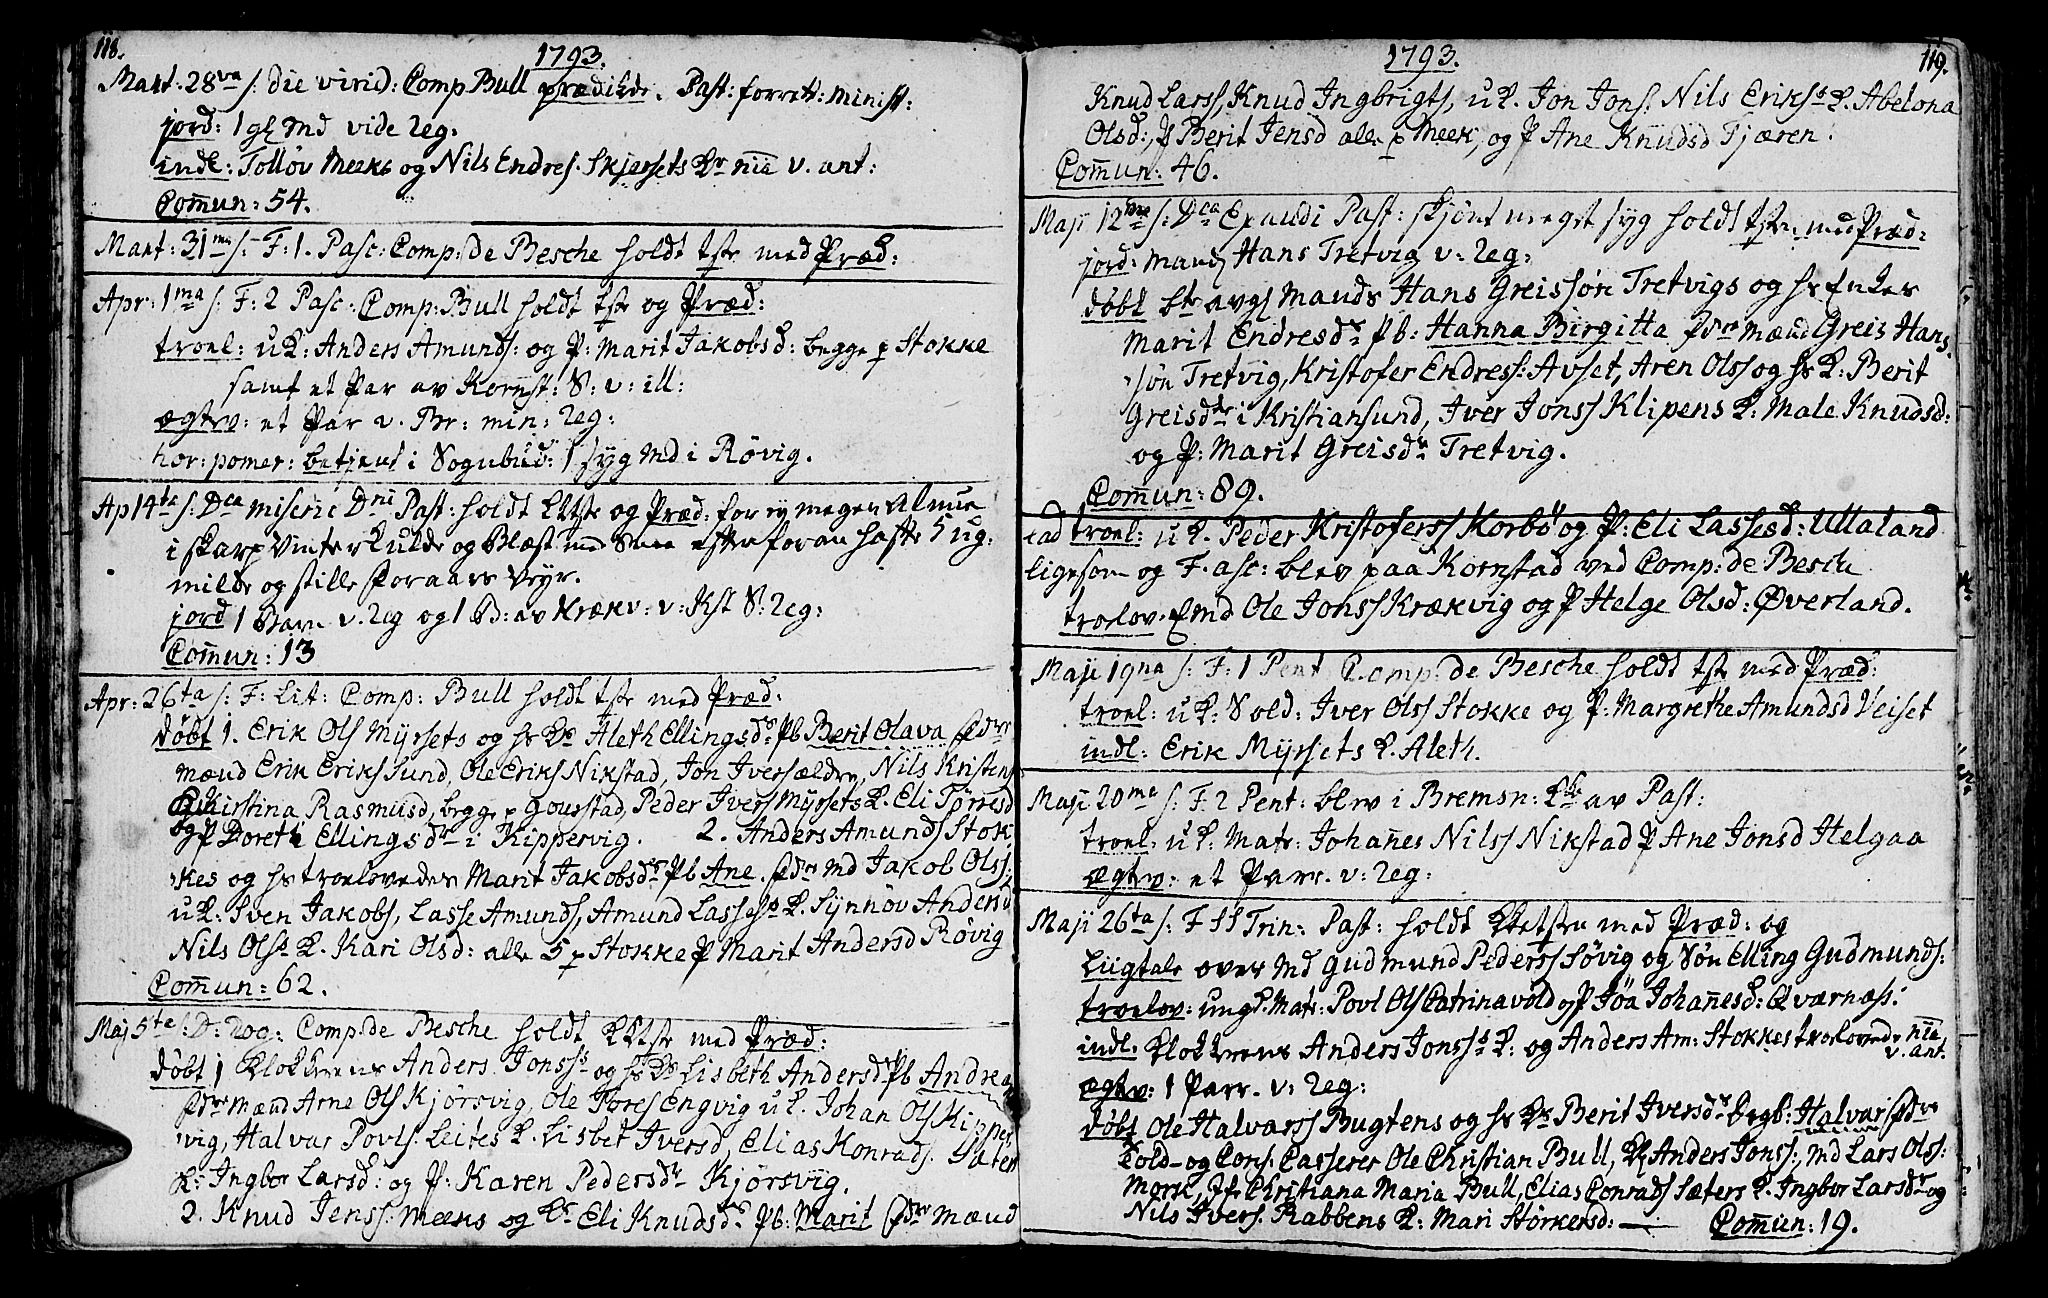 118.
1793.
Mart. 28va s: die virid: Comp. Bull prædikde. Past: forrett: minist:
jord: 1 gl Md vide Reg:
indl: Tolløv Meeks og Nils Endres. Skjersets Kr nia v. ant:
Comun: 54.
Mart: 31ma s: F: 1. Pasc: Comp: de Besche holdt tste med Præd:
Apr: 1ma s: F: 2 Pasc: Comp: Bull holdt tste og Præd:
troel: uK: Anders Amunds: og P: Marit Jakobsd: begge p Stokke
samt et Par av Kornst: S: v: ill:
ægtev: et Par v. Br: min: Reg:
hor: pomer: betjent i Sognebud: 1 syg Md i Røvig.
Ap 14ta s: Dca Miseric Dni Past: holdt tste og Præd: for ej megen Almue
i skarp Vinter Kulde og Blæst med Snee efter foran hafte 5 ug:
milde og stille Foraars Veyr.
jord 1 Barn v. Reg og 1 B: av Krækv: v: Kst S: Reg:
Comun: 13
Apr: 26ta s: F: Lit: Comp: Bull holdt tste med Præd:
døbt 1. Erik Ols Myrsets og hs Ko Aleth Ellingsdr Pb Berit Olava Fdre
mænd Erik Eriks Sund, Ole Eriks Nikstad, Jon Ivers ældre, Nils Kristens
Kirstina Rasmusd, begge p Gousstad, Peder Ivers Myrsets K. Eli Tørresd
og P Doreth Ellingsdr i Kippervig. 2. Anders Amunds Stok
kes og hs troelovedes Marit Jakobsdr Pb Ane. Fdre Md Jakob Olss:
uK: Sven Jakobs, Lasse Amunds, Amund Lasses K. Synnøv Andersd
Nils Olss K. Kari Olsd: alle 5 p Stokke P Marit Andersd Røvig
Comun: 62.
Maj 5ta s: D: Rog: Comp: de Besche holdt tste med Præd:
døbt 1 Klokkerens Anders Jonss og hs Ko Lisbeth Andersdr Pb Andrea
Fdre mænd Arne Ols Kjørsvig, Ole Tores Engvig uK. Johan Ols Kipper
vig, Halvar Povls: Leites K. Lisbet Iversd, Elias Konrads: Sæters
K: Ingbor Larsd: og P: Karen Pedersdr Kjørsvig.
2. Knud Jenss: Meeks og Ko Eli Knudsdr Pb: Marit Fdre mænd
1793.
119.
Knud Larss, Knud Ingbrigts, uK. Jon Jons: Nils Erikss K. Abelona
Olsd: P Berit Jensd alle p Meek, og P Ane Knudsd Fjæren:
Comun: 46.
Maji 12ma s: Dca Exaudi Past: skjønt meget syg holdt tste med Præd:
jord: Mand Hans Tretvig v: Reg:
døbt avg Mands Hans Greissøn Tretvigs og hs Enkes
Marit Endresdr Pb: Hanna Birgitta Fdre mænd Greis Hans
søn Tretvig, Kristofer Endress: Avset, Aren Olss og hs K: Berit
Greisdr i Kristiansund, Iver Jonss Klipens K: Male Knudsd:
og P: Marit Greisdr Tretvig.
Comun: 89.
ead troel: uK. Peder Kristoferss Korbø og P: Eli Lassesd: Ullaland
ligesom og F. asc: blev paa Kornstad ved Comp: de Besche
troelov: Emd Ole Jonss Krækvig og P Helge Olsd: Øverland.
Maji 19na s: F: 1 Pent Comp: de Besche holdt tste med Præd:
troel: uK: Sold: Iver Olss Stokke og P: Margrethe Amundsd Veiset
indl: Erik Myrsets K. Aleth.
Maji 20ma s: F: 2 Pent: blev i Bremsn: Ke av Past:
troel: uK: Matr: Johanes Nilss Nikstad P Ane Jonsd Helgaa
ægtev: et Parr. v: Reg:
Maji 26ta s: F SS Trin: Past: holdt tsten med Præd: og
Liigtale over Md Gudmund Pederss Søvig og Søn Elling Gudmunds:
troelov: ungK. Matr: Povl Ols Catrinavold og P Joa Johanesd: Qværnæss:
indl: Klokkerens Anders Jonss K: og Anders Am: Stokkes troelovede nia
v. ant:
ægtev: 1 Parr. v: Reg:
døbt Ole Halvarss Bugtens og hs Ko Berit Iversdr Drgb: Halvar Fdre
Told- og Cons: Casserer Ole Christian Bull, Kl Anders Jonss:, Md Lars Olss:
Mork, Jfr Christiana Maria Bull, Elias Conrads Sæters K. Ingbor Larsdr og
Nils Ivers: Rabbens K: Mari Størkersd: — Comun: 19.